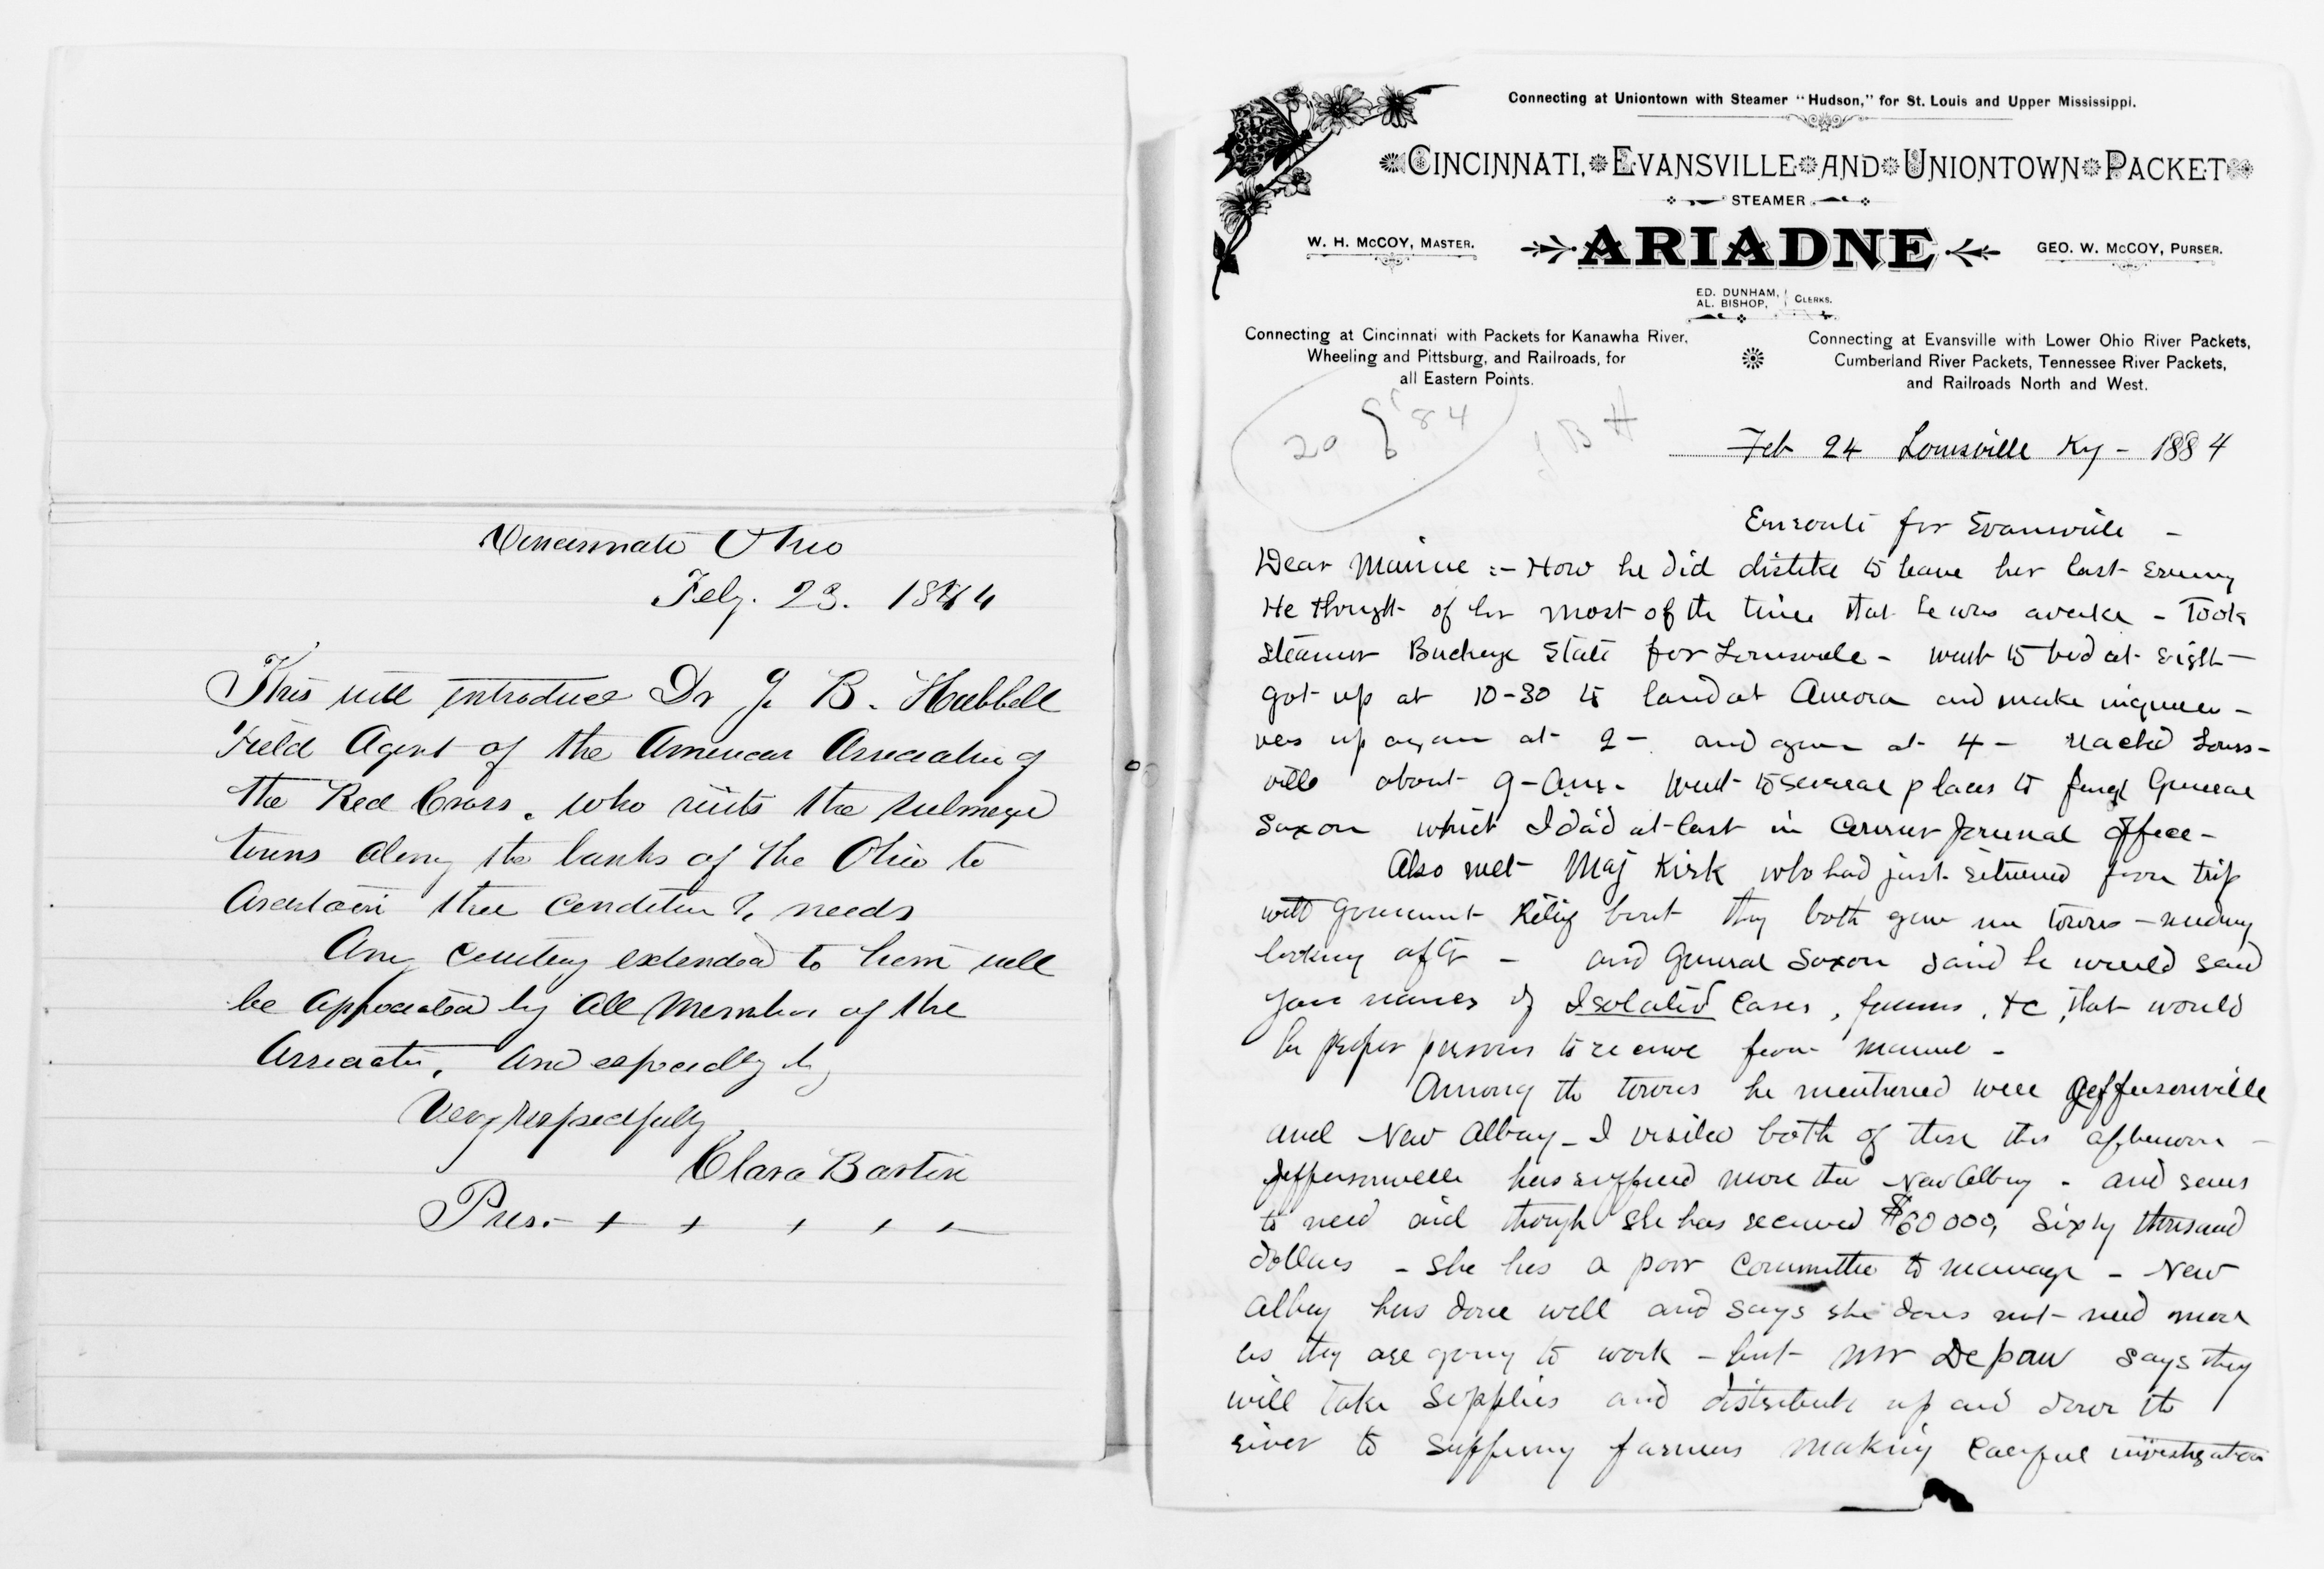 Cincinnati Ohio
Feby. 23. 1884
This will introduce Dr J. B. Hubbell
Field Agent of the American Association of
the Red Cross, who visits the submerged
towns along the banks of the Ohio to
Ascertain their condition & needs
Any courtesy extended to him will
be appreciated by all Members of the
Association, and especially by
Very respectfully
Clara Barton
Pres.
Connecting at Uniontown with Steamer "Hudson," for St. Louis and Upper Mississippi.
CINCINNATI, EVANSVILLE AND UNIONTOWN PACKET
STEAMER
W. H. McCOY, MASTER.
ARIADNE
GEO. W. McCOY, PURSER.
ED. DUNHAM,
AL. BISHOP,
CLERKS.
Connecting at Cincinnati with Packets for Kanawha River,
Wheeling and Pittsburg, and Railroads, for
all Eastern Points.
Connecting at Evansville with Lower Ohio River Packets,
Cumberland River Packets, Tennessee River Packets,
and Railroads North and West.
84
20
J B H
Feb 24 Louisville Ky - 1884
Enroute for Evansville -
Dear Mamie :- How he did dislike to leave her last evening
He thought of her most of the time that he was awake - Took
steamer Buckeye State for Louisville - went to bed at eight
got up at 10-30 to land at Aurora and make inquiries -
was up again at 2 - and again at 4 - reached Louis-
ville about 9-am. Went to several places to find General
Saxon which I did at last in Courier Journal office -
Also met Maj Kirk who had just returned from trip
with Government Relief boat they both gave me towns - needing
looking after - and General Saxon said he would send
you names of Isolated cases, farms, &c, that would
be proper persons to receive from Mamie -
Among the towns he mentioned were Jeffersonville
and New Albany - I visited both of these this afternoon -
Jeffersonville has suffered more than New Albany - and seems
to need aid though she has received $60 000, Sixty thousand
dollars - she has a poor committee to manage - New
Albany has done well and says she does not need more
as they are going to work - but Mr Depauw says they
will take supplies and distribute up and down the
river to suffering farmers making careful investigation